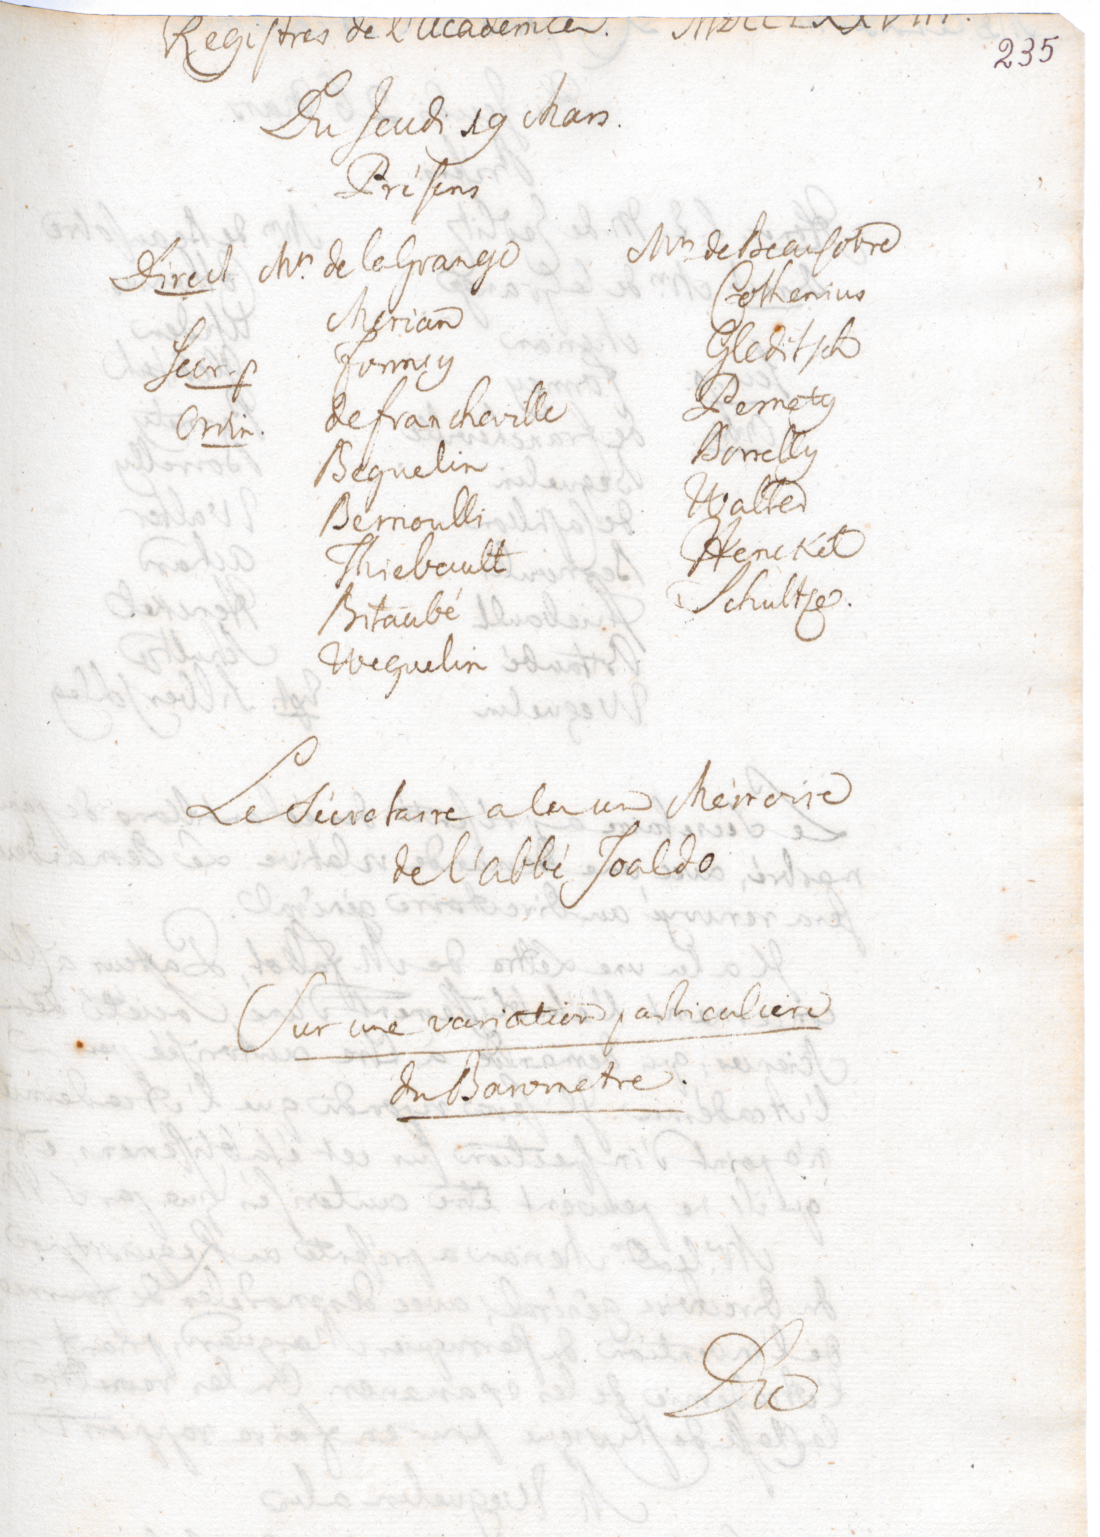 Registres de l'Academie. MDCCLXXVIII.
235
Du Jeudi 19 Mars.
Présens
Direct Mrs. de la Grange
Merian
Secr. p. Formey
Ordin. de Francheville
Beguelin
Bernoulli
Thiebault
Bitaubé
Weguelin
Mrs. de Beausobre
Cothenius
Gleditsch
Pernety
Borrelly
Walter
Henckel
Schultze.
Le Sécretaire a lu un Mémoire
de l'abbé Toaldo
Sur une variation particuliere
du Barometre.
Du